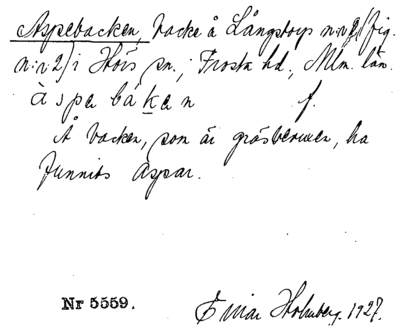 Aspebacken, backe å Långstorp n:r 2 (fig.
n:r 2) i Höörs sn., Frosta hd., Mlm. län.
àspabákan f.
Å backen, som är gräsbevuxen, ha
funnits aspar.
Nr 5559. Einar Holmberg. 1927.